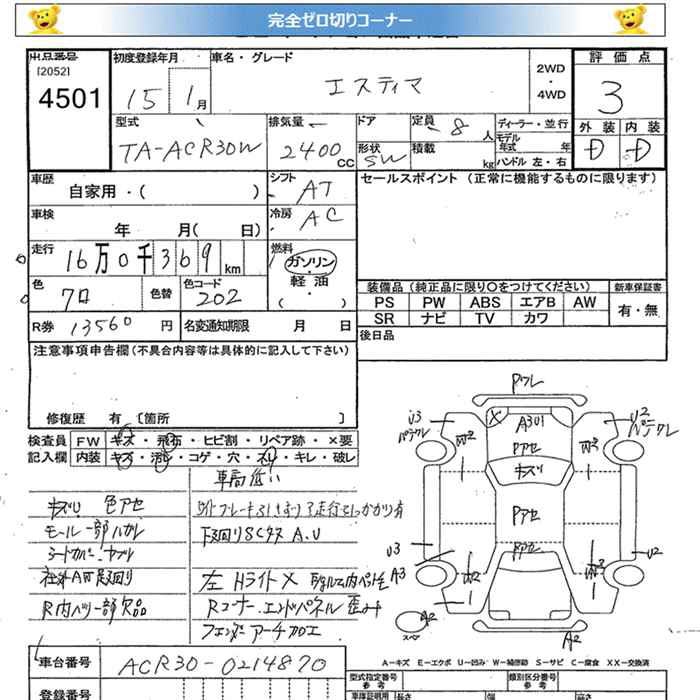 完全ゼロ切りコーナー
出品番号 初度登録年月 車名・グレード 2WD・4WD 評価点
[2052]
4501 15 1月 エスティマ 3
外装 内装
D D
型式 排気量 ドア 定員 8人 ディーラー・並行
TA-ACR30W 2400CC 形状 SW 積載 kg モデル年式 年
ハンドル 左・右
車歴 自家用・( ) シフト AT セールスポイント (正常に機能するものに限ります)
車検 年 月( 日) 冷房 AC
走行 16万0千369km 燃料 ガソリン・軽油・( )
色 クロ 色替 色コード 202
装備品(純正品に限り〇をつけてください) 新車保証書
PS PW ABS エアB AW 有・無
SR ナビ TV カワ
R券 13560円 名変通知期限 月 日 後日品
注意事項申告欄(不具合内容等は具体的に記入して下さい)
修復歴 有 [箇所 ]
検査員 FW キズ・飛石・ヒビ割・リペア跡・×要
記入欄 内装 キズ・汚れ・コゲ・穴・スレ・キレ・破レ
車高低い
キズリ 色アセ
モール一部ハガレ
下回りSCタス A.U
シートカバー
社外AW
左 Hライト×
R内ハリ一部欠品 Rコーナー、エンドパネル歪み
フェンダーアーチ加工
Pワレ
X A3U1
U3 U2
Pアセ
W2 W3
キズリ
Pアセ
U3 U2
A3
W2 XX2
A2
スペア
A2
A-キズ E-エクボ U-凹み W-補修跡 S-サビ C-腐食 XX-交換済
車台番号 ACR30-0214870 型式指定番号 参考 類別区分番号 参考
登録番号 車庫証明用 長さ 幅 高さ